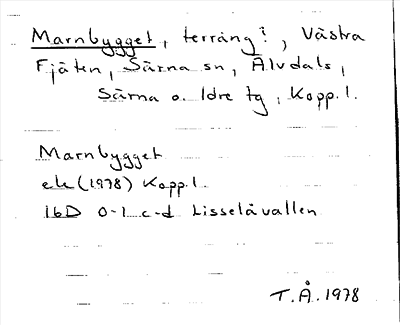 Marnbygget, terräng?, Västra
Fjäten, Särna sn, Älvdals,
Särna o. Idre tg, Kopp.l.
Marnbygget
ek (1978) Kopp.l.
16D 0-1 c-d Lisselåvallen
T.Å. 1978